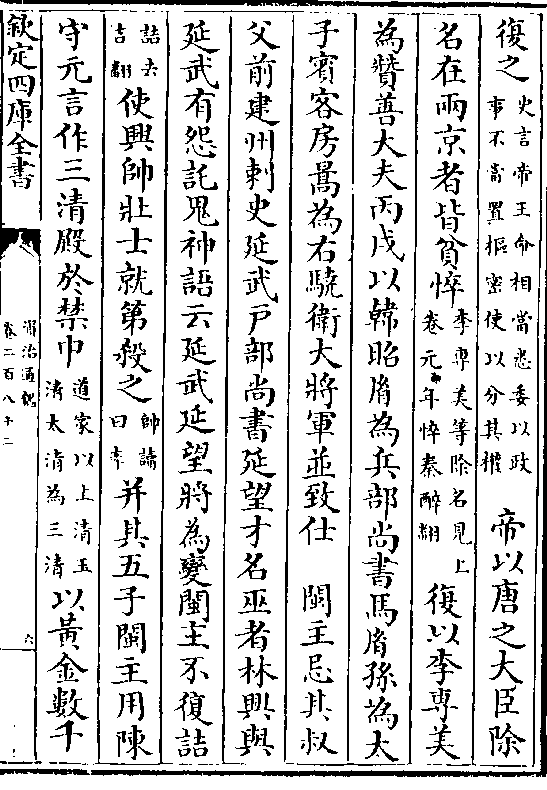 復之史言帝王命相當悉委以政事不當置樞密使以分其權　帝以唐之大臣除
名在兩京者皆貧悴李專美等除名見上卷元年悴秦醉翻復以李專美
為贊善大夫丙戌以韓昭胤為兵部尚書馬胤孫為太
子賓客房暠為右驍衛大將軍並致仕　閩主忌其叔
父前建州刺史延武戶部尚書延望才名巫者林興與
延武有怨託鬼神語云延武延望將為變閩主不復詰
詰去吉翻使興帥壯士就第殺之帥讀曰率并其五子閩主用陳
守元言作三清殿於禁中道家以上清玉清太清為三清以黃金數千
欽定四庫全書
資治通鑑
卷二百八十二
六